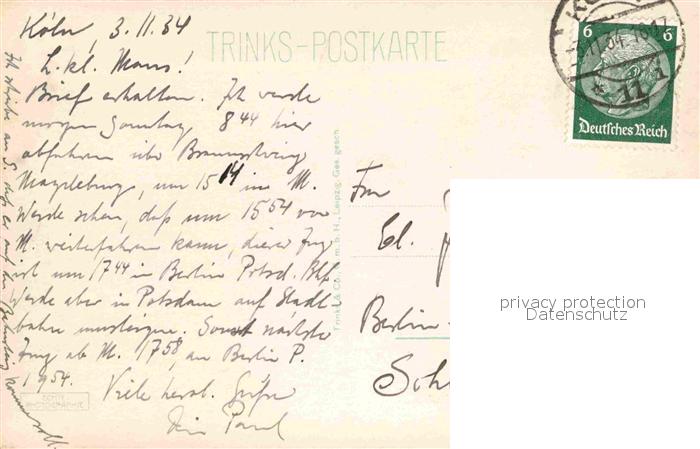 TRINKS-POSTKARTE
Köln, 3.11.34
L. kl. Maus!
Brief erhalten. Ich werde
morgen Sonntag, 8 44 hier
abfahren über Braunschweig
Magdeburg, um 15 14 in M.
Werde sehen, daß um 15 54 von
M. weiterfahren kann, dieser Zug
ist um 17 44 in Berlin Potsd. Bhf.
Werde aber in Potsdam auf Stadt-
bahn umsteigen. Sonst nächster
Zug ab M. 17 58, an Berlin P.
19 54.
Viele herzl. Grüße
Dein Paul
Ich schreibe an
er auf den Bahnsteig kommen soll.
Trinks & Co., G. m. b. H., Leipzig. Ges. gesch.
ECHTE
PHOTOGRAPHIE
6 6
Deutsches Reich
3.11.34
11
Frau
El.
Berlin-
Sch
privacy protection
Datenschutz